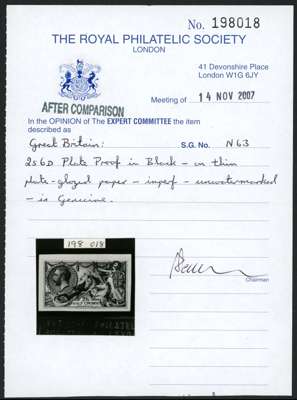 No. 198018
THE ROYAL PHILATELIC SOCIETY
LONDON
41 Devonshire Place
London W1G 6JY
Meeting of 14 NOV 2007
AFTER COMPARISON
In the OPINION of The EXPERT COMMITTEE the item
described as
Great Britain: S.G. No. N63
2s6D Plate Proof in Black - on thin
plate-glazed paper - imperf - unwatermarked
- is Genuine.
198 018
HALF CROWN
Chairman